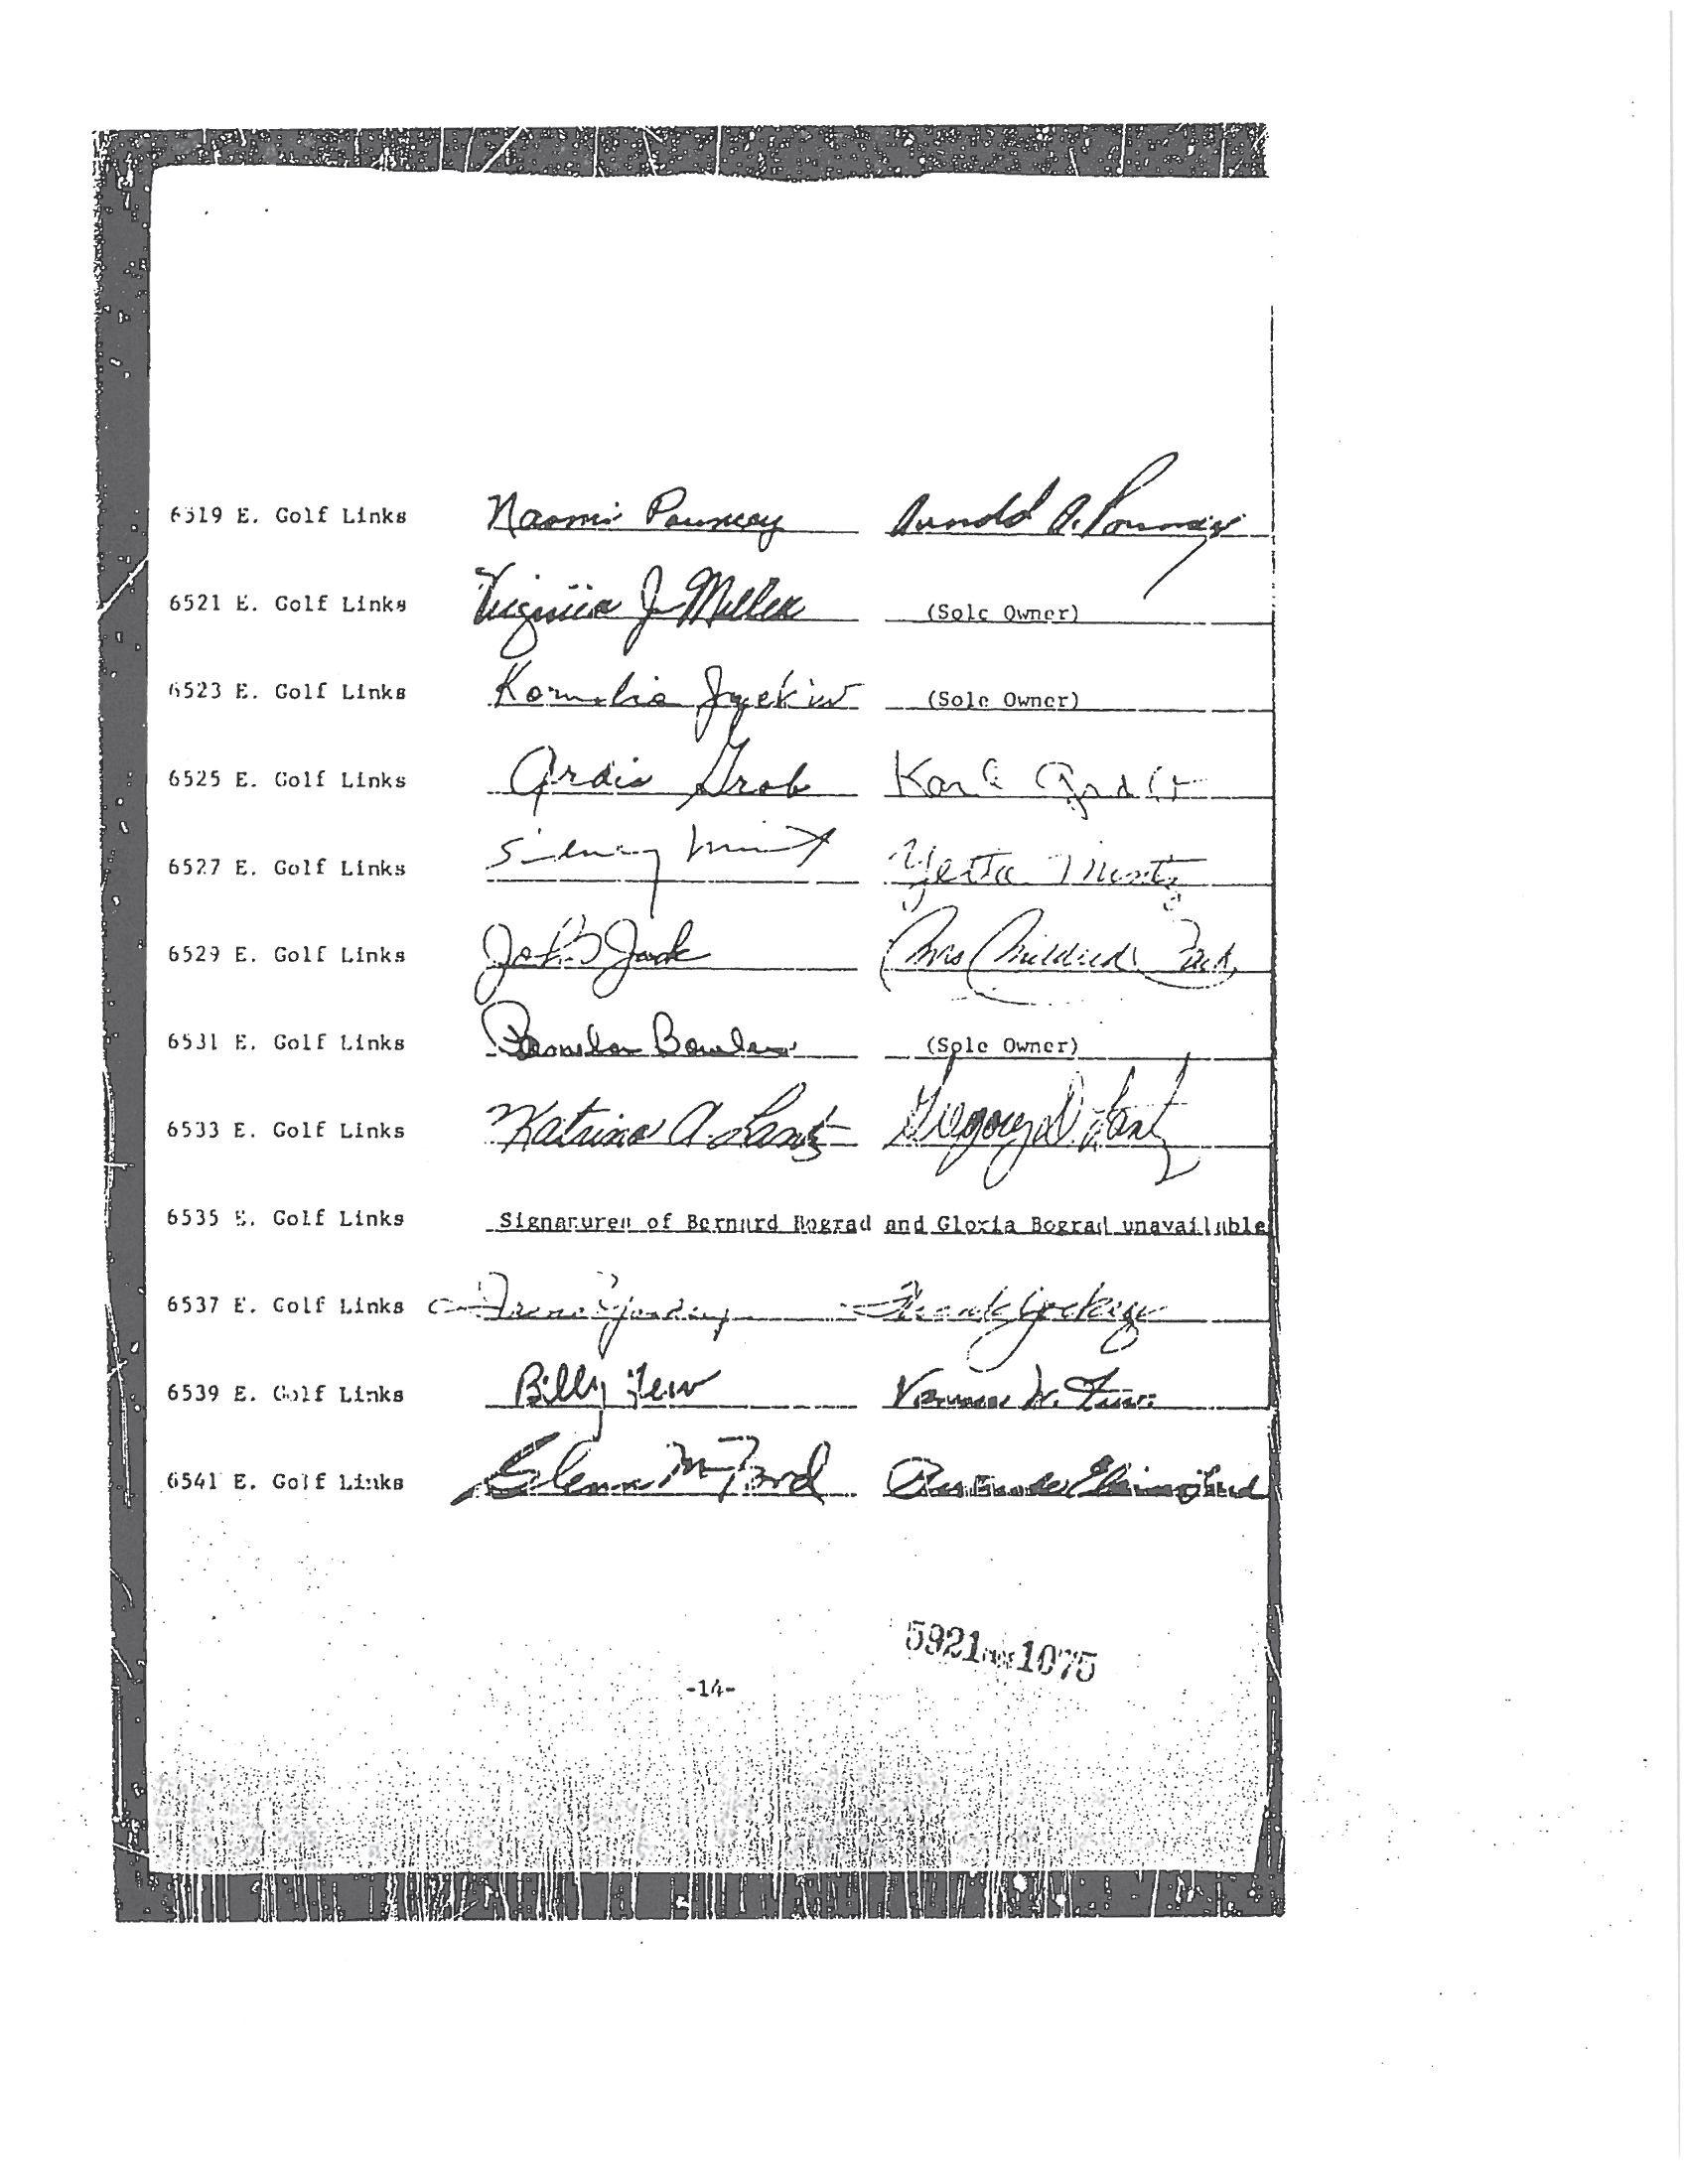 6519 E. Golf Links Naomi Pouncey Arnold A. Pouncey
6521 E. Golf Links Virginia J. Miller (Sole Owner)
6523 E. Golf Links Kornelia (Sole Owner)
6525 E. Golf Links Ardis Grob Karl
6527 E. Golf Links Sidney Mintz Yetta Mintz
6529 E. Golf Links Jack Mrs Mildred Jack
6531 E. Golf Links (Sole Owner)
6533 E. Golf Links Katrina A. Lantz Gregory D. Lantz
6535 E. Golf Links Signatures of Bernard Bograd and Gloria Bograd unavailable
6537 E. Golf Links Frank
6539 E. Golf Links Billy Tew W.
6541 E. Golf Links Glenn M Ford
5921 1075
-14-